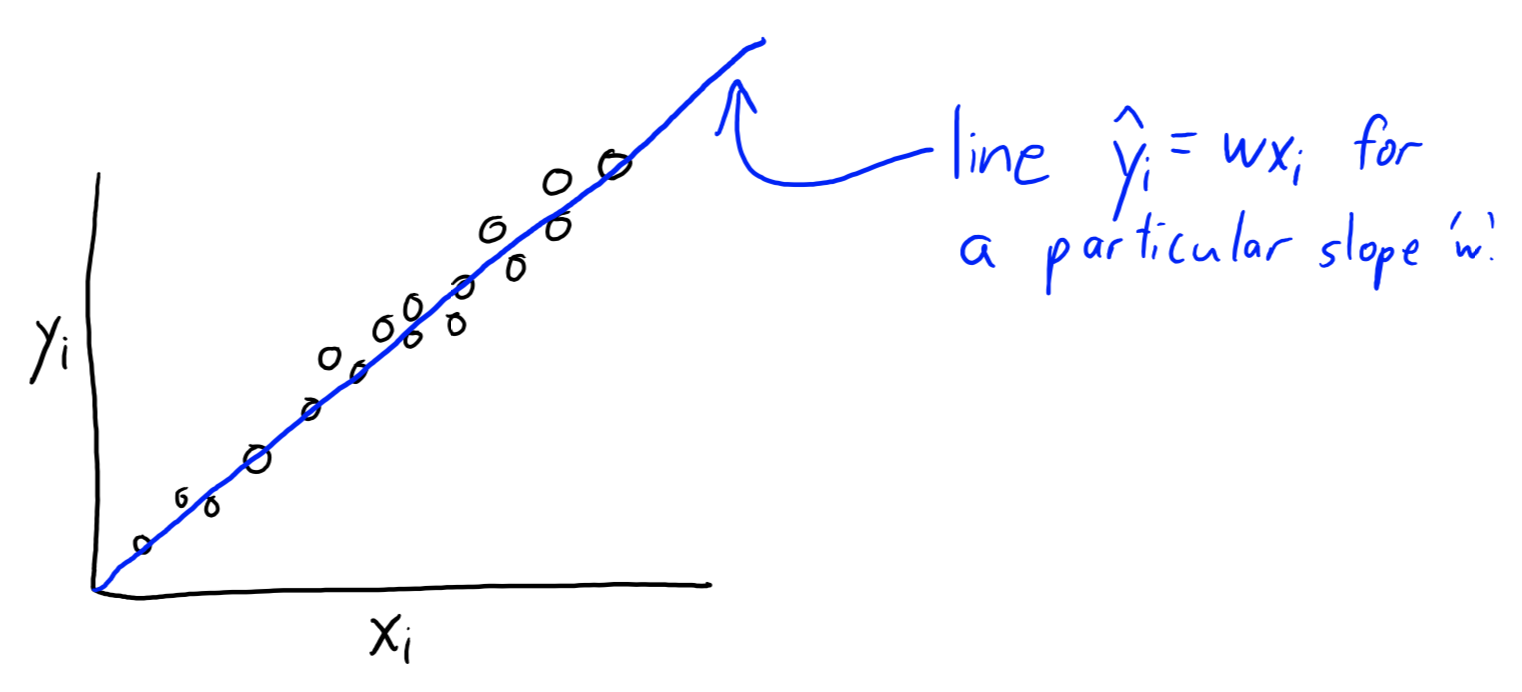 line ŷᵢ = wxᵢ for
a particular slope 'w'.
yᵢ
xᵢ